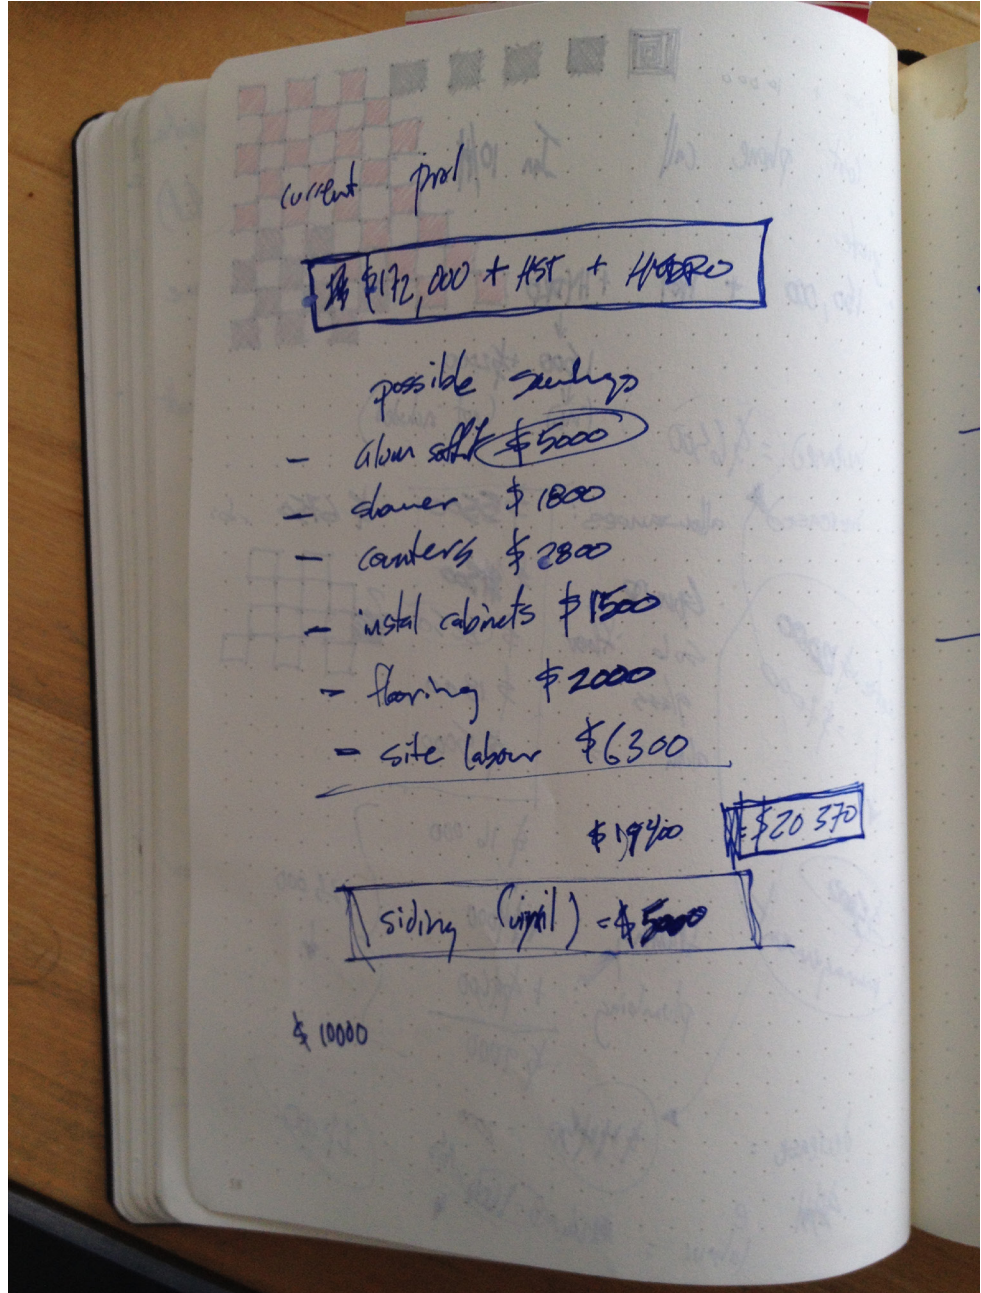 current
$172,000 + HST + HYDRO
possible savings
- alum soffit $5000
- shower $1800
- counters $2800
- instal cabinets $1500
- flooring $2000
- site labour $6300
$19400 = $20 370
siding (vinyl) = $5000
$10000